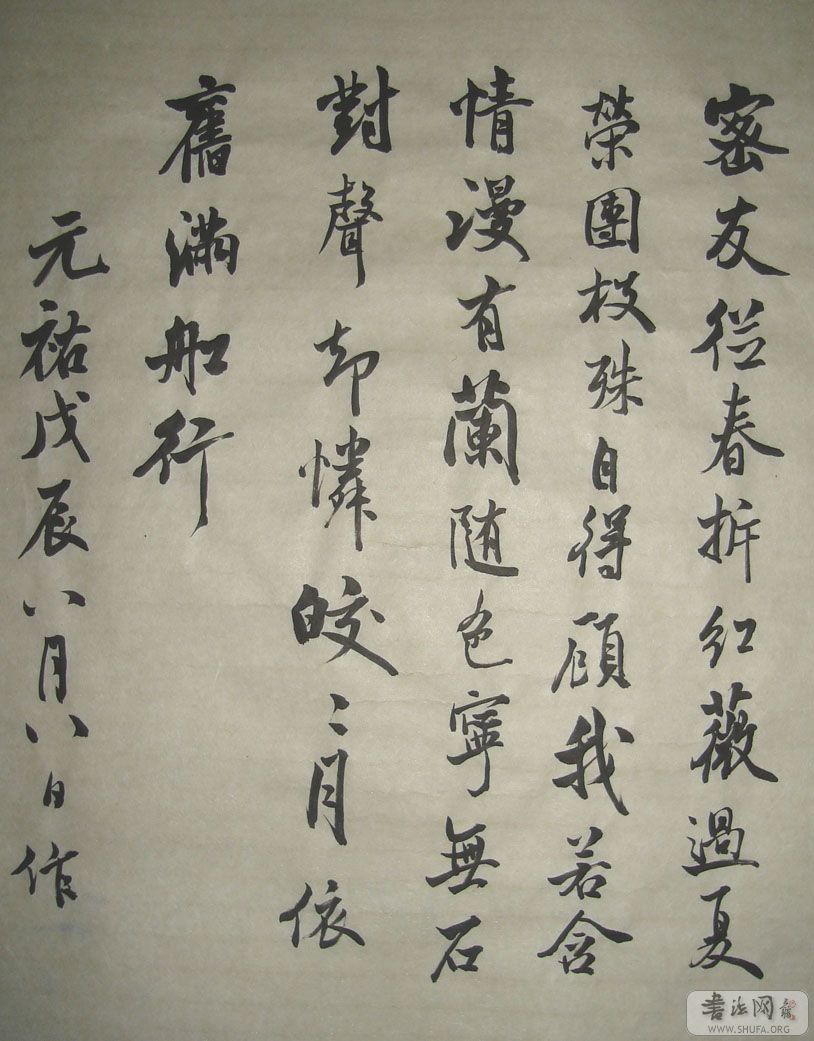 密友從春拆紅薇過夏
榮團枝殊自得顧我若含
情漫有蘭随色寧無石
對聲却憐皎〻月依
舊滿舡行
元祐戊辰八月八日作
书法网
WWW.SHUFA.ORG